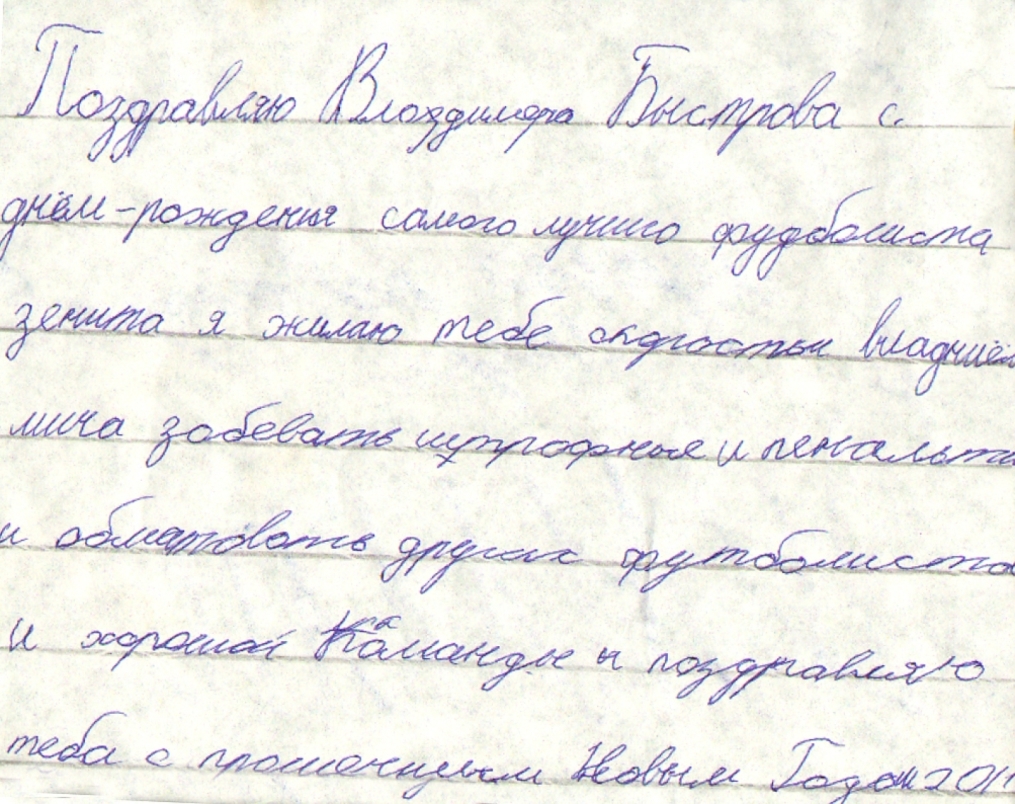 Поздравляю Владимира Быстрова с
днём-рожденья самого лучшго фудболиста
зенита я жилаю тебе скоростьи владние
мича забевать штрофные и пенальти
и обматовать других футболиста
и хорошой Команды и поздравляю
теба с прошенцым Новым Годом 2011